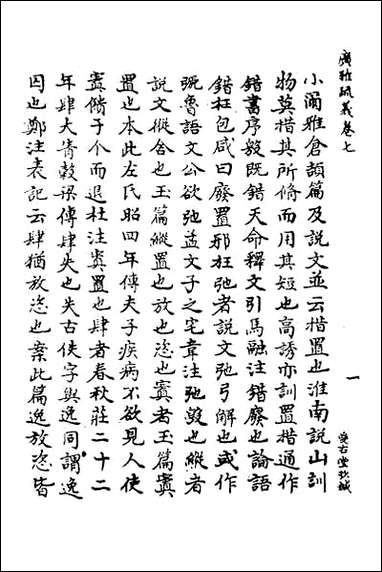 廣雅疏義卷七
一
愛古堂
小爾雅倉頡篇及說文並云措置也淮南說山訓
物莫措其所脩而用其短也高誘亦訓置措通作
錯書序殷既錯天命釋文引馬融注錯廢也論語
錯枉包咸曰廢置邪枉弛者說文弛弓解也或作
魯語文公欲弛孟文子之宅韋注弛毀也縱者
說文縱舍也玉篇縱置也放也恣也寘者玉篇寘
置也本此左氏昭四年傳夫子疾病不欲見人使
寘饋于个而退杜注寘置也肆者春秋莊二十二
年肆大眚穀梁傳肆失也失古佚字與逸同謂逸
囚也鄭注表記云肆猶放恣也案此篇逸放恣皆